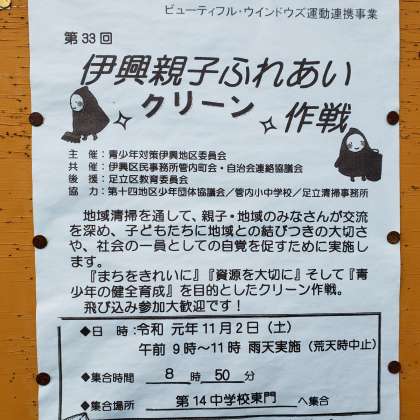 ビューティフル・ウインドウズ運動連携事業
第33回
伊興親子ふれあい
クリーン
作戦
主 催：青少年対策伊興地区委員会
共 催：伊興区民事務所管内町会・自治会連絡協議会
後 援：足立区教育委員会
協 力：第十四地区少年団体協議会／管内小中学校／足立清掃事務所
地域清掃を通して、親子・地域のみなさんが交流
を深め、子どもたちに地域との結びつきの大切さ
や、社会の一員としての自覚を促すために実施し
ます。
『まちをきれいに』『資源を大切に』そして『青
少年の健全育成』を目的としたクリーン作戦。
飛び込み参加大歓迎です！
◆日 時：令和 元年11月2日（土）
午前 9時～11時 雨天実施（荒天時中止）
◆集合時間 8 時 50 分
◆集合場所 第14中学校東門 へ集合